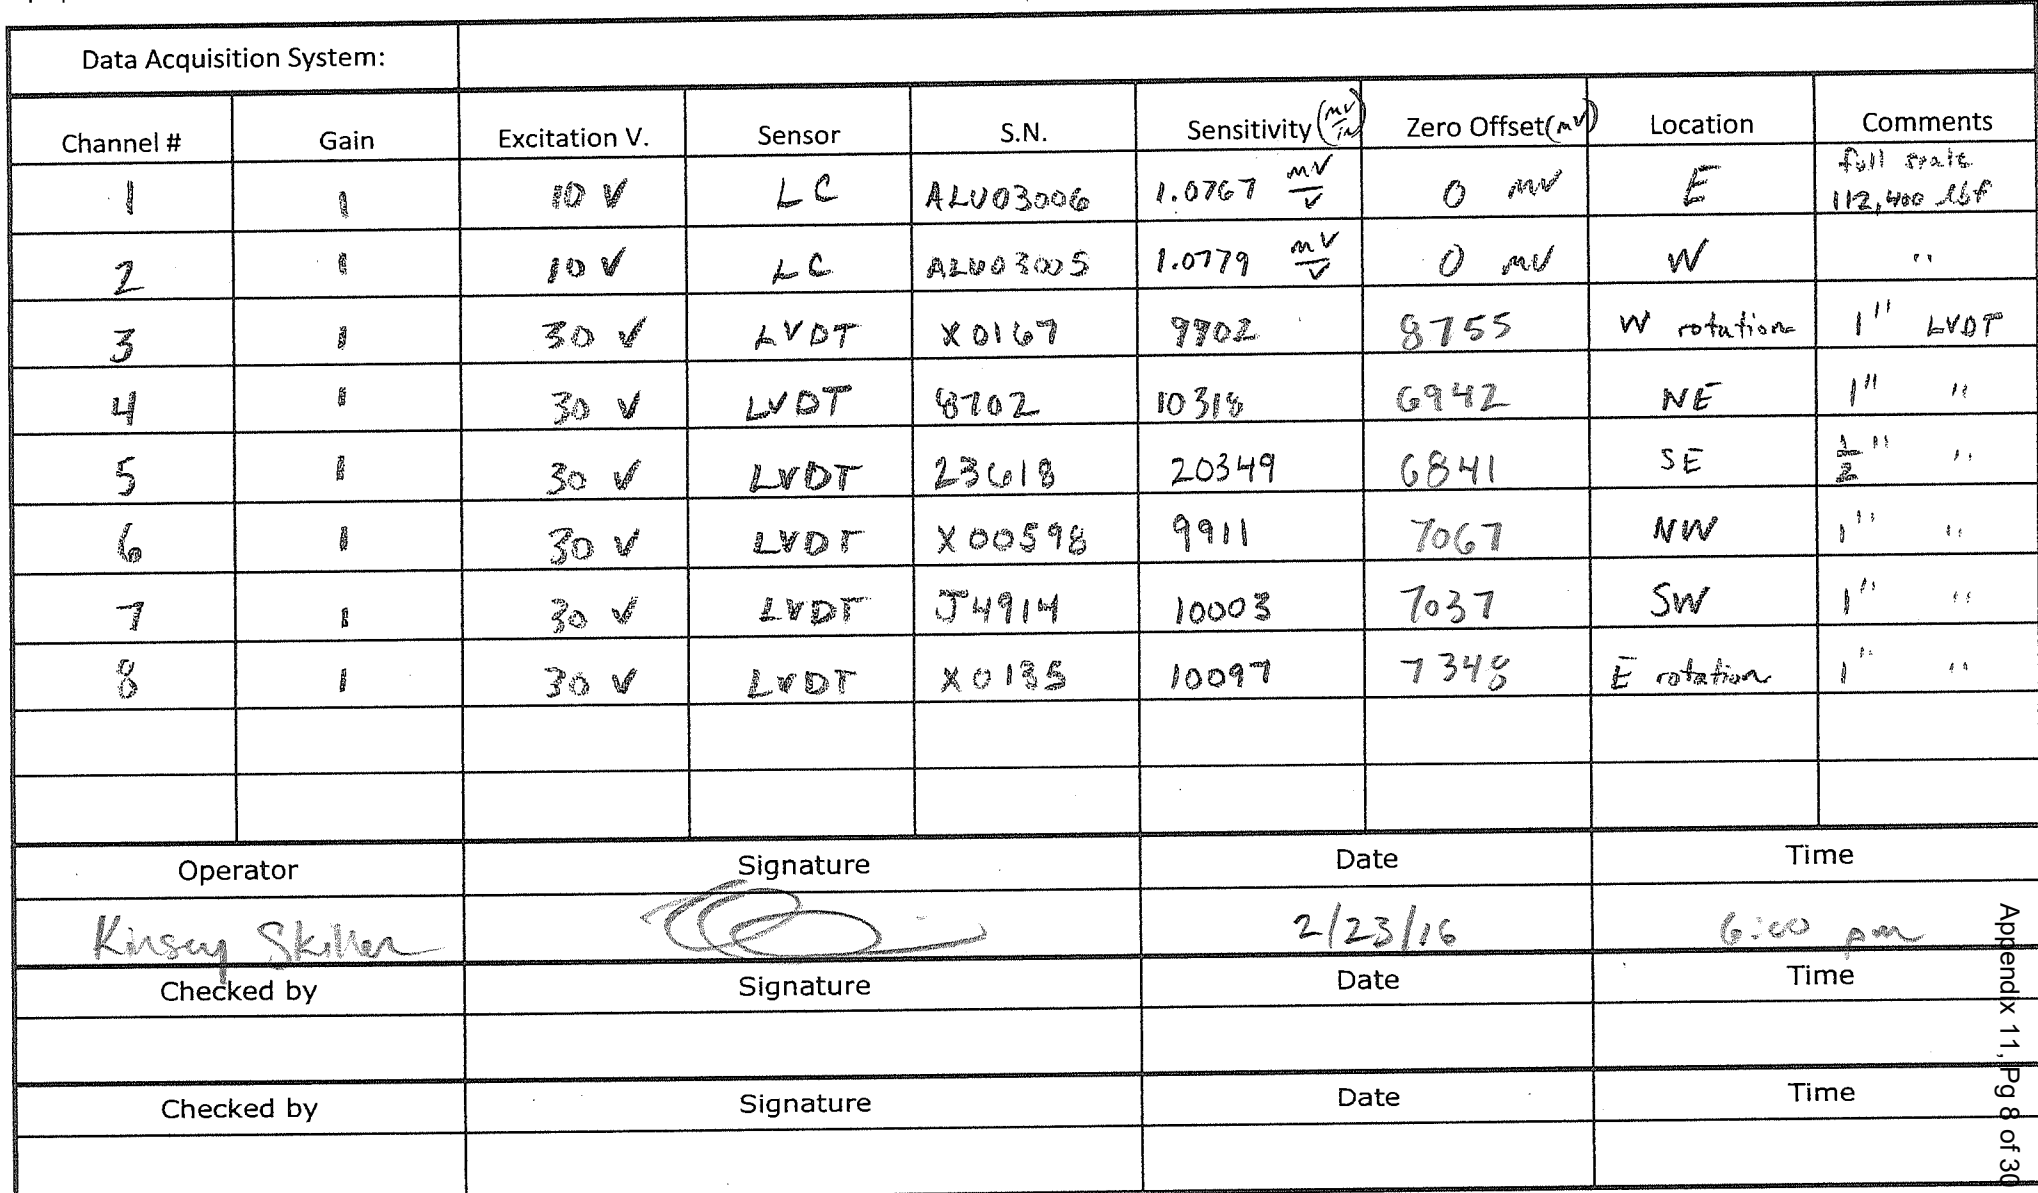 Data Acquisition System:
Channel # Gain Excitation V. Sensor S.N. Sensitivity (mV/in) Zero Offset (mV) Location Comments
1 1 10 V LC ALU03006 1.0767 mV/V 0 mV E full scale 112,400 lbf
2 1 10 V LC ALU03005 1.0779 mV/V 0 mV W "
3 1 30 V LVDT X0167 9902 8755 W rotation 1" LVDT
4 1 30 V LVDT 8702 10318 6942 NE 1" "
5 1 30 V LVDT 23618 20349 6841 SE 1/2" "
6 1 30 V LVDT X00598 9911 7067 NW 1" "
7 1 30 V LVDT J4914 10003 7037 SW 1" "
8 1 30 V LVDT X0185 10097 7348 E rotation 1" "
Operator Signature Date Time
Kinsey Skillen 2/23/16 6:00 pm
Checked by Signature Date Time
Checked by Signature Date Time
Appendix 11, Pg 8 of 30